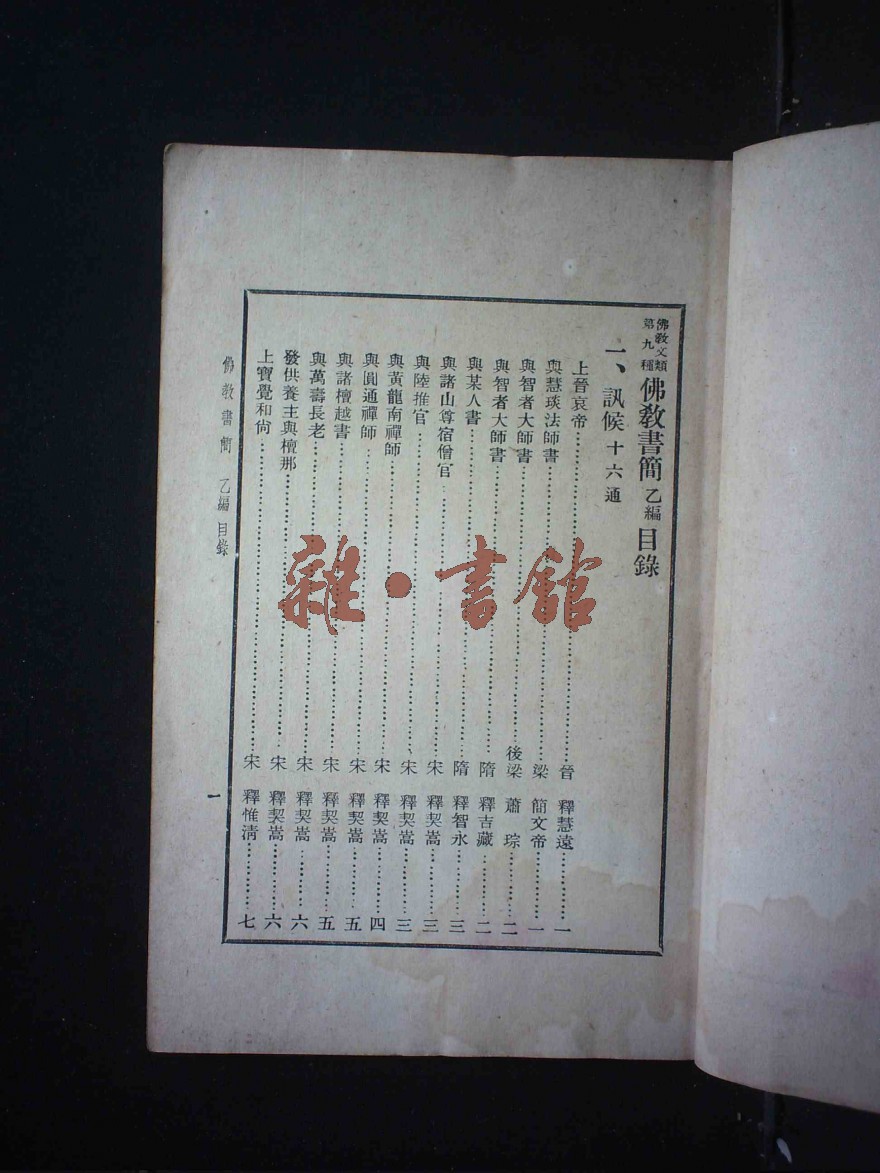 佛教文類
第九種
佛教書簡 乙編 目錄
一、訊候 十六通
上晉哀帝……晉 釋慧遠……一
與慧琰法師書……梁 簡文帝……一
與智者大師書……後梁 蕭 琮……二
與智者大師書……隋 釋吉藏……二
與某人書……隋 釋智永……三
與諸山尊宿僧官……宋 釋契嵩……三
與陸推官……宋 釋契嵩……三
與黃龍南禪師……宋 釋契嵩……四
與圓通禪師……宋 釋契嵩……五
與諸檀越書……宋 釋契嵩……五
與萬壽長老……宋 釋契嵩……六
發供養主與檀那……宋 釋契嵩……六
上寶覺和尚……宋 釋惟清……七
佛教書簡 乙編 目錄
一
雜·書館